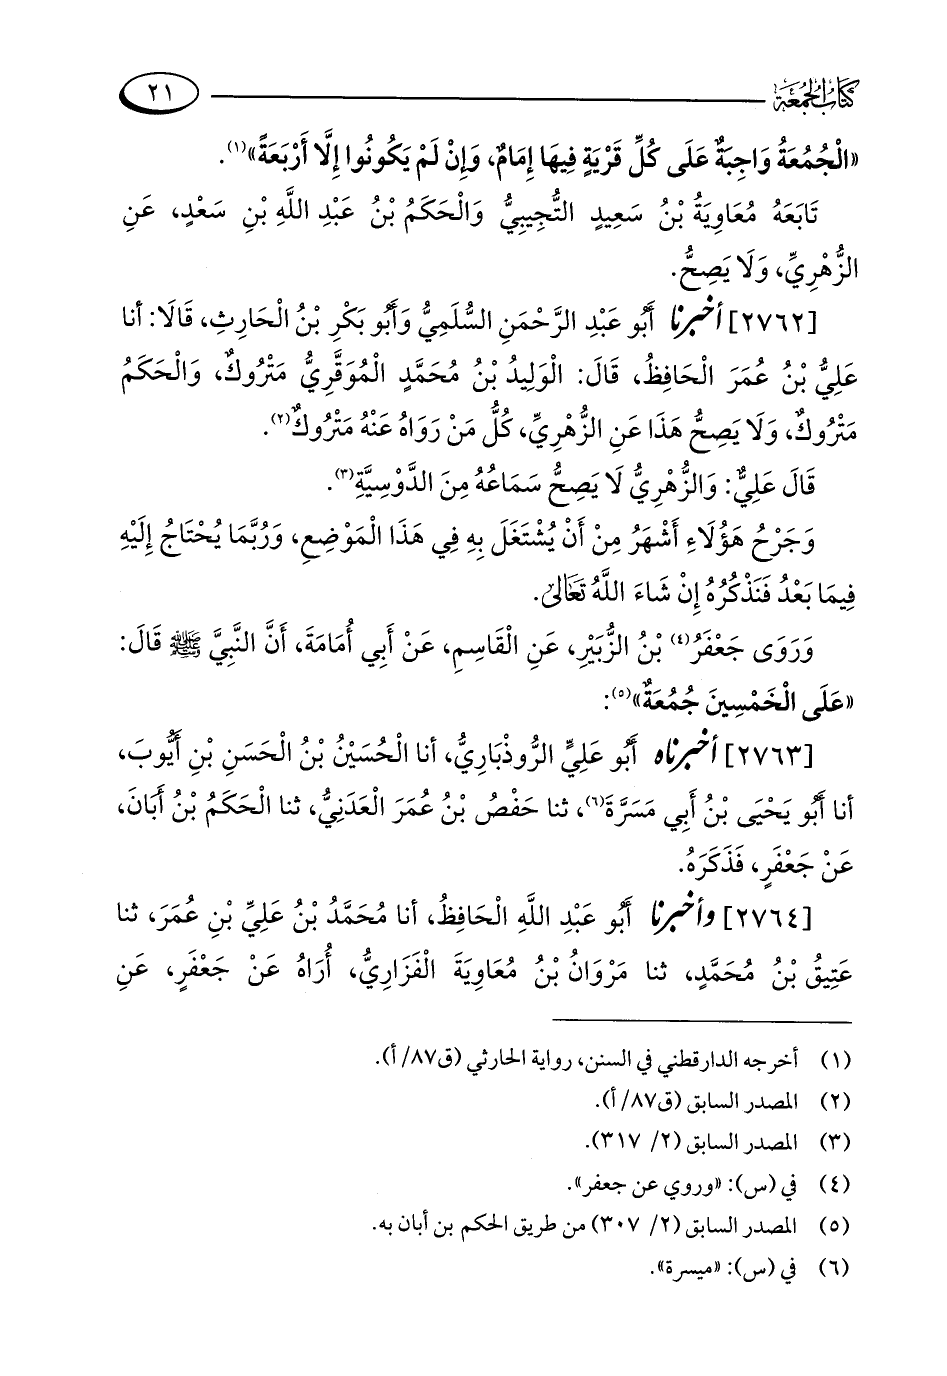 كتاب الجمعة ٢١
«الْجُمُعَةُ وَاجِبَةٌ عَلَى كُلِّ قَرْيَةٍ فِيهَا إِمَامٌ، وَإِنْ لَمْ يَكُونُوا إِلَّا أَرْبَعَةً»(١).
تَابَعَهُ مُعَاوِيَةُ بْنُ سَعِيدٍ التُّجِيبِيُّ وَالْحَكَمُ بْنُ عَبْدِ اللَّهِ بْنِ سَعْدٍ، عَنِ
الزُّهْرِيِّ، وَلَا يَصِحُّ.
[٢٧٦٢] أخبرنا أَبُو عَبْدِ الرَّحْمَنِ السُّلَمِيُّ وَأَبُو بَكْرِ بْنُ الْحَارِثِ، قَالَا: أنا
عَلِيُّ بْنُ عُمَرَ الْحَافِظُ، قَالَ: الْوَلِيدُ بْنُ مُحَمَّدٍ الْمُوَقَّرِيُّ مَتْرُوكٌ، وَالْحَكَمُ
مَتْرُوكٌ، وَلَا يَصِحُّ هَذَا عَنِ الزُّهْرِيِّ، كُلُّ مَنْ رَوَاهُ عَنْهُ مَتْرُوكٌ(٢).
قَالَ عَلِيٌّ: وَالزُّهْرِيُّ لَا يَصِحُّ سَمَاعُهُ مِنَ الدَّوْسِيَّةِ(٣).
وَجَرْحُ هَؤُلَاءِ أَشْهَرُ مِنْ أَنْ يُشْتَغَلَ بِهِ فِي هَذَا الْمَوْضِعِ، وَرُبَّمَا يُحْتَاجُ إِلَيْهِ
فِيمَا بَعْدُ فَنَذْكُرُهُ إِنْ شَاءَ اللَّهُ تَعَالَى.
وَرَوَى جَعْفَرُ(٤) بْنُ الزُّبَيْرِ، عَنِ الْقَاسِمِ، عَنْ أَبِي أُمَامَةَ، أَنَّ النَّبِيَّ ﷺ قَالَ:
«عَلَى الْخَمْسِينَ جُمُعَةٌ»(٥):
[٢٧٦٣] أخبرناه أَبُو عَلِيٍّ الرُّوذْبَارِيُّ، أنا الْحُسَيْنُ بْنُ الْحَسَنِ بْنِ أَيُّوبَ،
أنا أَبُو يَحْيَى بْنُ أَبِي مَسَرَّةَ(٦)، ثنا حَفْصُ بْنُ عُمَرَ الْعَدَنِيُّ، ثنا الْحَكَمُ بْنُ أَبَانَ،
عَنْ جَعْفَرٍ، فَذَكَرَهُ.
[٢٧٦٤] وأخبرنا أَبُو عَبْدِ اللَّهِ الْحَافِظُ، أنا مُحَمَّدُ بْنُ عَلِيِّ بْنِ عُمَرَ، ثنا
عَتِيقُ بْنُ مُحَمَّدٍ، ثنا مَرْوَانُ بْنُ مُعَاوِيَةَ الْفَزَارِيُّ، أُرَاهُ عَنْ جَعْفَرٍ، عَنِ
(١) أخرجه الدارقطني في السنن، رواية الحارثي (ق٨٧/ أ).
(٢) المصدر السابق (ق٨٧/ أ).
(٣) المصدر السابق (٢/ ٣١٧).
(٤) في (س): «وروي عن جعفر».
(٥) المصدر السابق (٢/ ٣٠٧) من طريق الحكم بن أبان به.
(٦) في (س): «ميسرة».